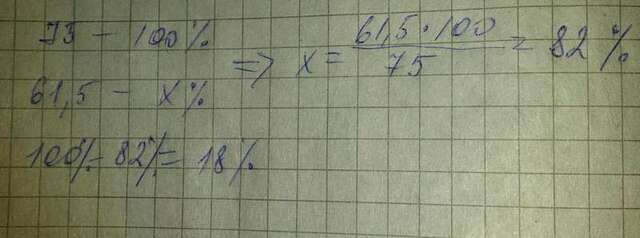 75 - 100%
61,5 - x%
=> x = 61,5 · 100 / 75 = 82%
100% - 82% = 18%